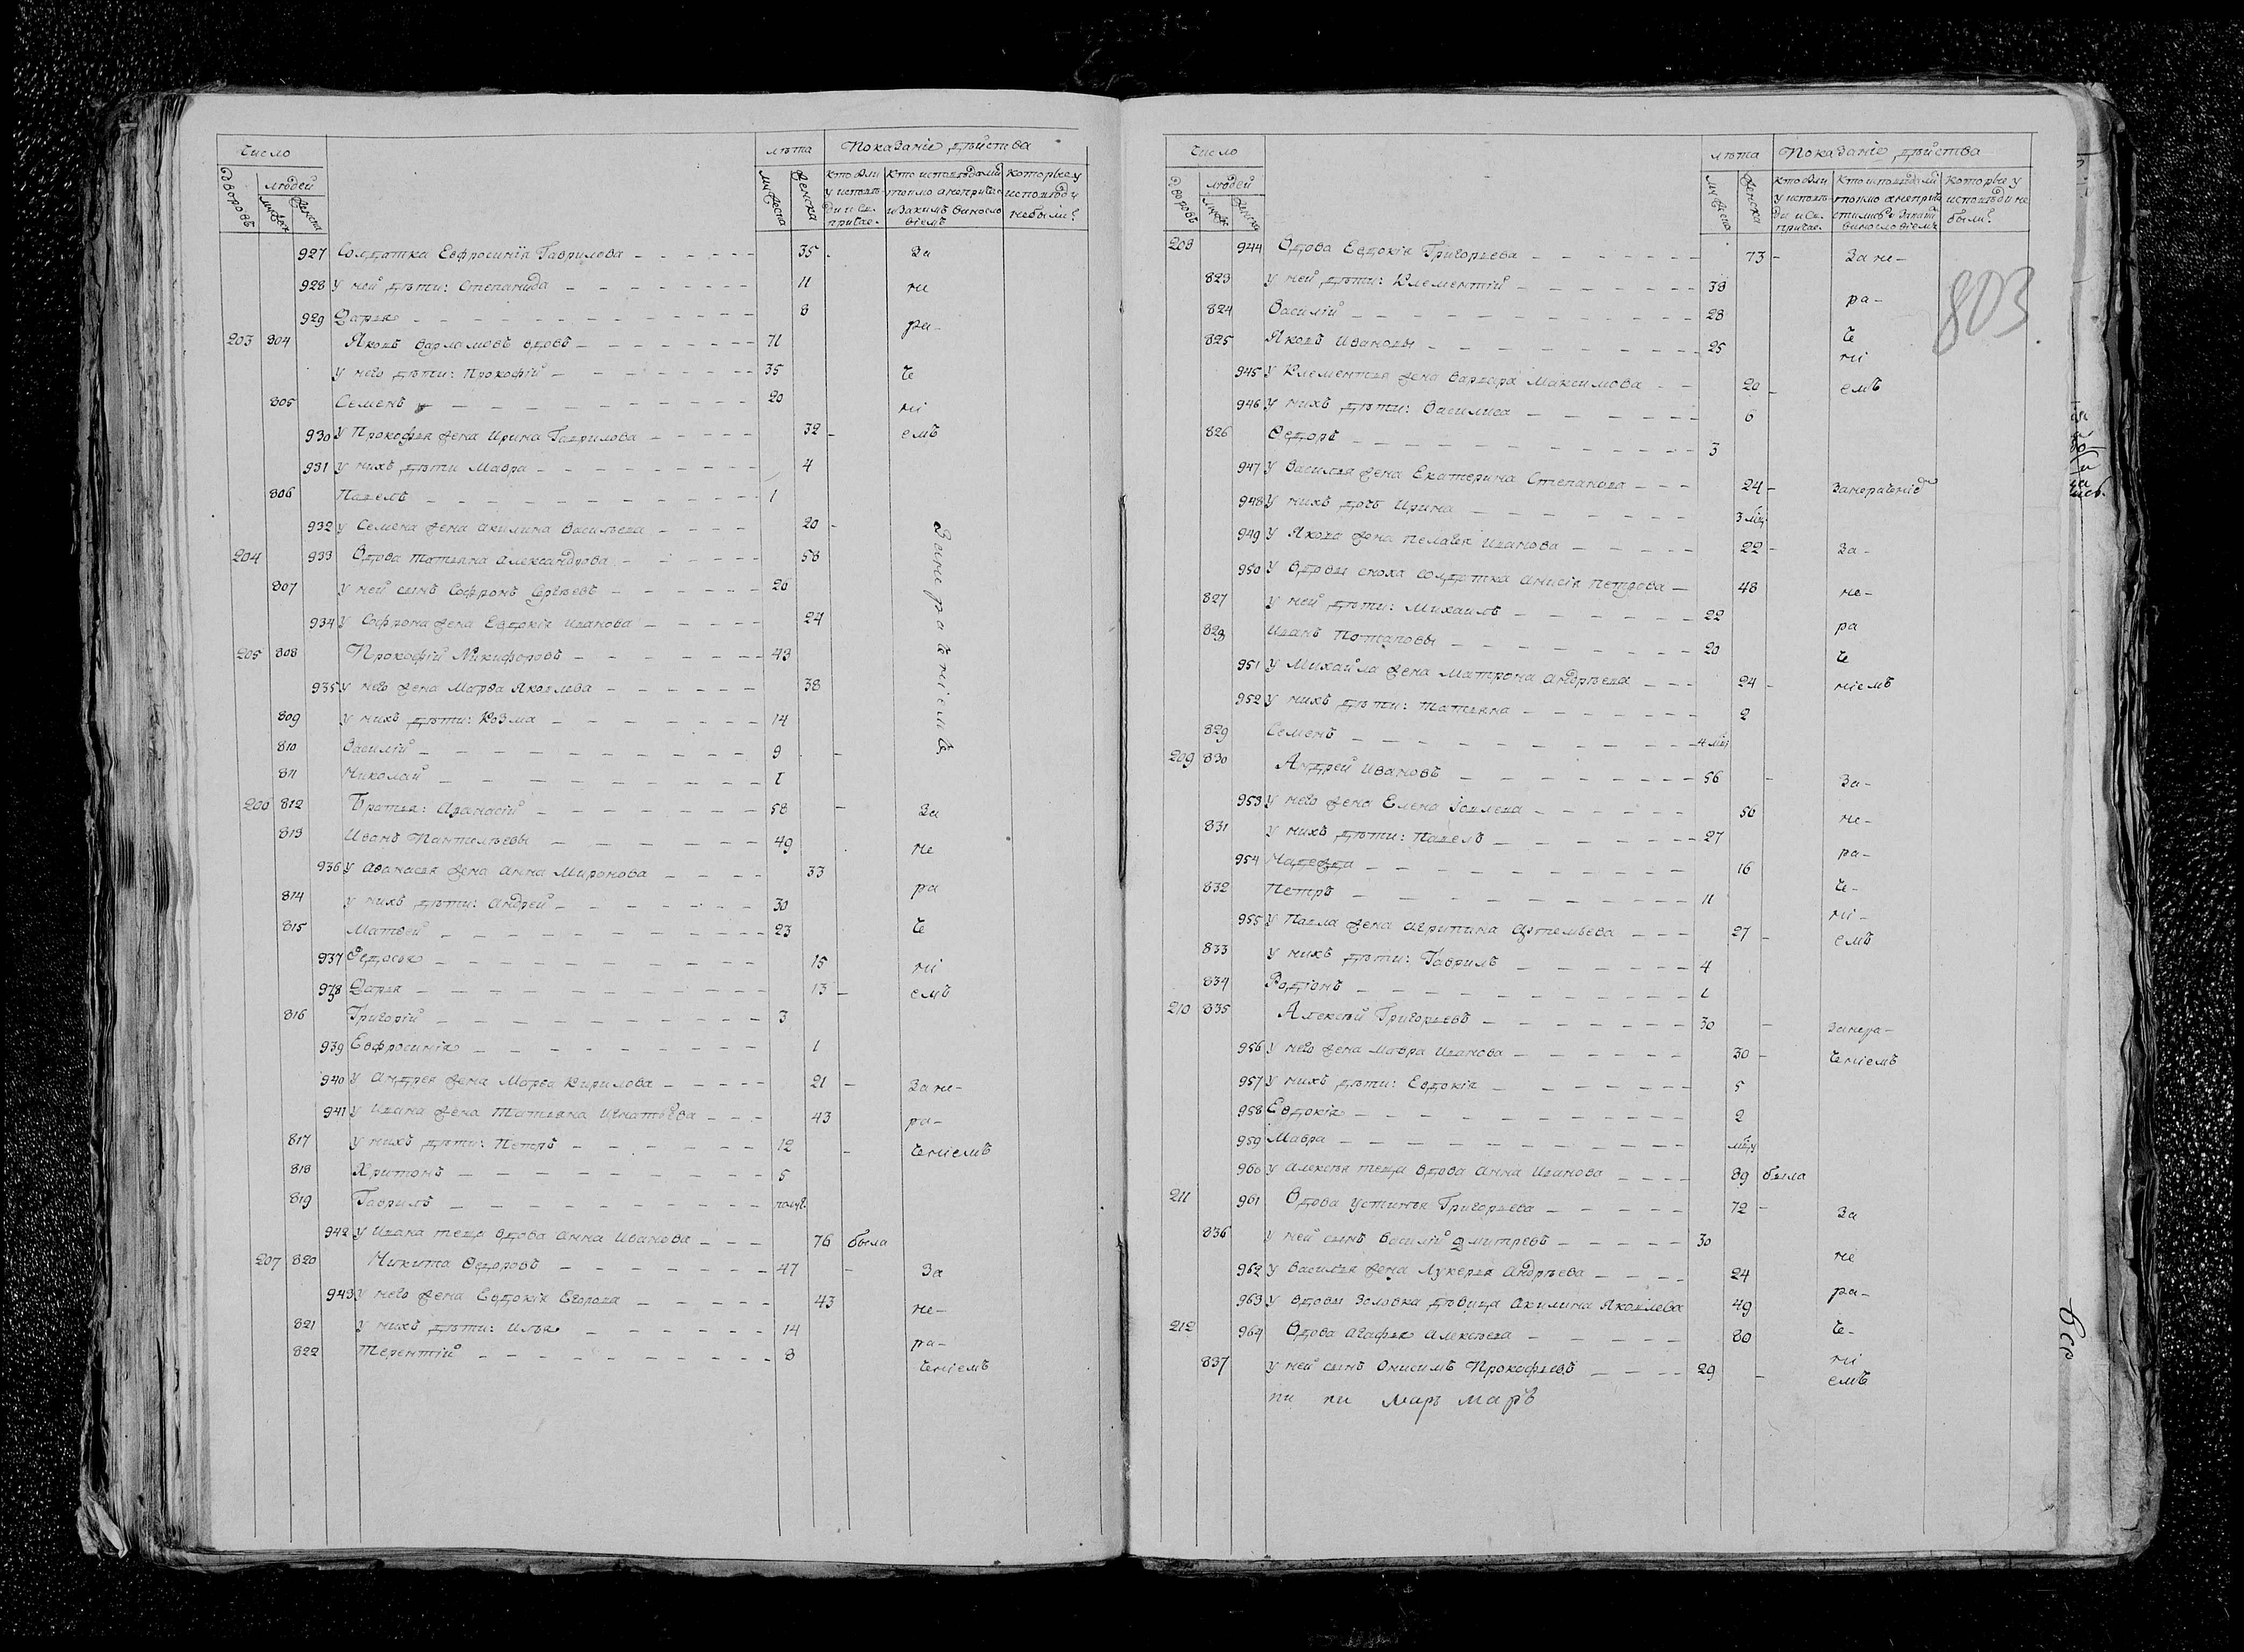 Число
лѣта Показаніе дѣйства
дворовъ людей мужеска женска
мужеска женска
кто были у исповѣди и св. причас.
кто исповѣдался токмо а непричас и закимъ винословіемъ
которые у исповѣди небыли
927 Солдатка Евфросинія Гаврилова 35 За
928 у ней дѣти: Степанида 11 не
929 Дарья 8 ра-
203 804 Яковъ Варламовъ вдовъ 71
у него дѣти: Прокофій 35 че
805 Семенъ 20 ні
930 у Прокофья жена Ирина Гаврилова 32 емъ
931 у нихъ дѣти Мавра 4
806 Павелъ 1
932 у Семена жена Акилина Васильева 20
Занерачніемъ
204 933 Вдова Татьяна Александрова 58
807 у ней сынъ Софронъ Сергѣевъ 26
934 у Софрона жена Евдокія Иванова 24
205 808 Прокофій Никифоровъ 43
935 у него жена Марѳа Яковлева 38
809 у нихъ дѣти: Козма 14
810 Василій 9
811 Николай 1
206 812 Братья: Аѳанасій 58 За
813 Иванъ Пантилѣевы 49 не
936 у Аѳанасья жена Анна Миронова 33 ра
814 у нихъ дѣти: Андрей 30
815 Матвей 23 че
937 Ѳедосья 15 ні
938 Дарья 13 емъ
816 Григорій 3
939 Евфросинія 1
940 у Андрея жена Марѳа Кирилова 21 Зане-
941 у Ивана жена Татьяна Игнатьева 43 ра-
817 у нихъ дѣти: Петръ 12 ченіемъ
818 Хритонъ 5
819 Гаврилъ полуг.
942 у Ивана теща вдова Анна Иванова 76 была
207 820 Никита Ѳедоровъ 47 За
943 у него жена Евдокія Егорова 43 не-
821 у нихъ дѣти: Илья 14 ра-
822 Терентій 8 ченіемъ
Число
лѣта Показаніе дѣйства
дворовъ людей мужеска женска
мужеска женска
кто были у исповѣди и св. причас.
кто исповѣдался токмо а неприча стились и закимъ винословіемъ
которые у исповѣди не были
803
208 944 Вдова Евдокія Григорьева 73 Зане-
823 у ней дѣти: Клементій 38 ра-
824 Василій 28 че
825 Яковъ Ивановы 25 ні
945 у Клементья жена Варвара Максимова 20 емъ
946 у нихъ дѣти: Василиса 6
826 Ѳедоръ 3
947 у Василья жена Екатерина Степанова 24 Занераченіе
948 у нихъ дочь Ирина 3 мѣц
949 у Якова жена Пелагѣя Иванова 22 За-
950 у вдовы сноха солдатка Анисія Петрова 48 не-
827 у ней дѣти: Михаилъ 22 ра
828 Иванъ Потаповы 20 че
951 у Михайла жена Матрона Андрѣева 24 ніемъ
952 у нихъ дѣти: Татьяна 2
829 Семенъ 4 мѣц
209 830 Андрей Ивановъ 56 За-
953 у него жена Елена Іовлева 56 не-
831 у нихъ дѣти: Павелъ 27 ра-
954 Надежда 16 че-
832 Петръ 11 ні-
955 у Павла жена Агрипина Артемьева 27 емъ
833 у нихъ дѣти: Гаврилъ 4
834 Родіонъ 1
210 835 Алексѣй Григорьевъ 30 Занера-
956 у него жена Мавра Иванова 30 ченіемъ
957 у нихъ дѣти: Евдокія 5
958 Евдокія 2
959 Мавра мѣц
960 у Алексѣя теща вдова Анна Иванова 89 была
211 961 Вдова Устинья Григорьева 72 За
836 у ней сынъ Василій Дмитревъ 30 не
962 у Василья жена Лукерья Андрѣева 24 ра-
963 у вдовы золовка дѣвица Акилина Яковлева 49
212 964 Вдова Агафья Алексѣева 80 че-
837 у ней сынъ Онисимъ Прокофьевъ 29 ні емъ
пи пи маръ маръ